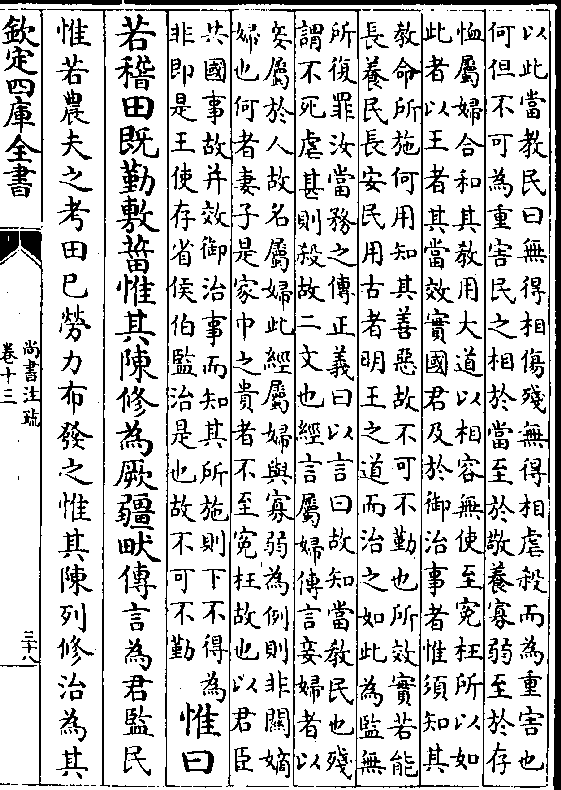 以此當教民曰無得相傷殘無得相虐殺而為重害也
何但不可為重害民之相於當至於敬養寡弱至於存
恤屬婦合和其教用大道以相容無使至冤枉所以如
此者以王者其當效實國君及於御治事者惟須知其
教命所施何用知其善惡故不可不勤也所效實若能
長養民長安民用古者明王之道而治之如此為監無
所復罪汝當務之傳正義曰以言曰故知當教民也殘
謂不死虐甚則殺故二文也經言屬婦傳言妾婦者以
妾屬於人故名屬婦此經屬婦與寡弱為例則非關嫡
婦也何者妻子是家巾之貴者不至冤枉故也以君臣
共國事故并效御治事而知其所施則下不得為
非即是王使存省侯伯監治是也故不可不勤
惟曰
若稽田既勤敷菑惟其陳修為厥疆畎傳言為君監民
惟若農夫之考田已勞力布發之惟其陳列修治為其
欽定四庫全書
尚書注疏
卷十三
三十八